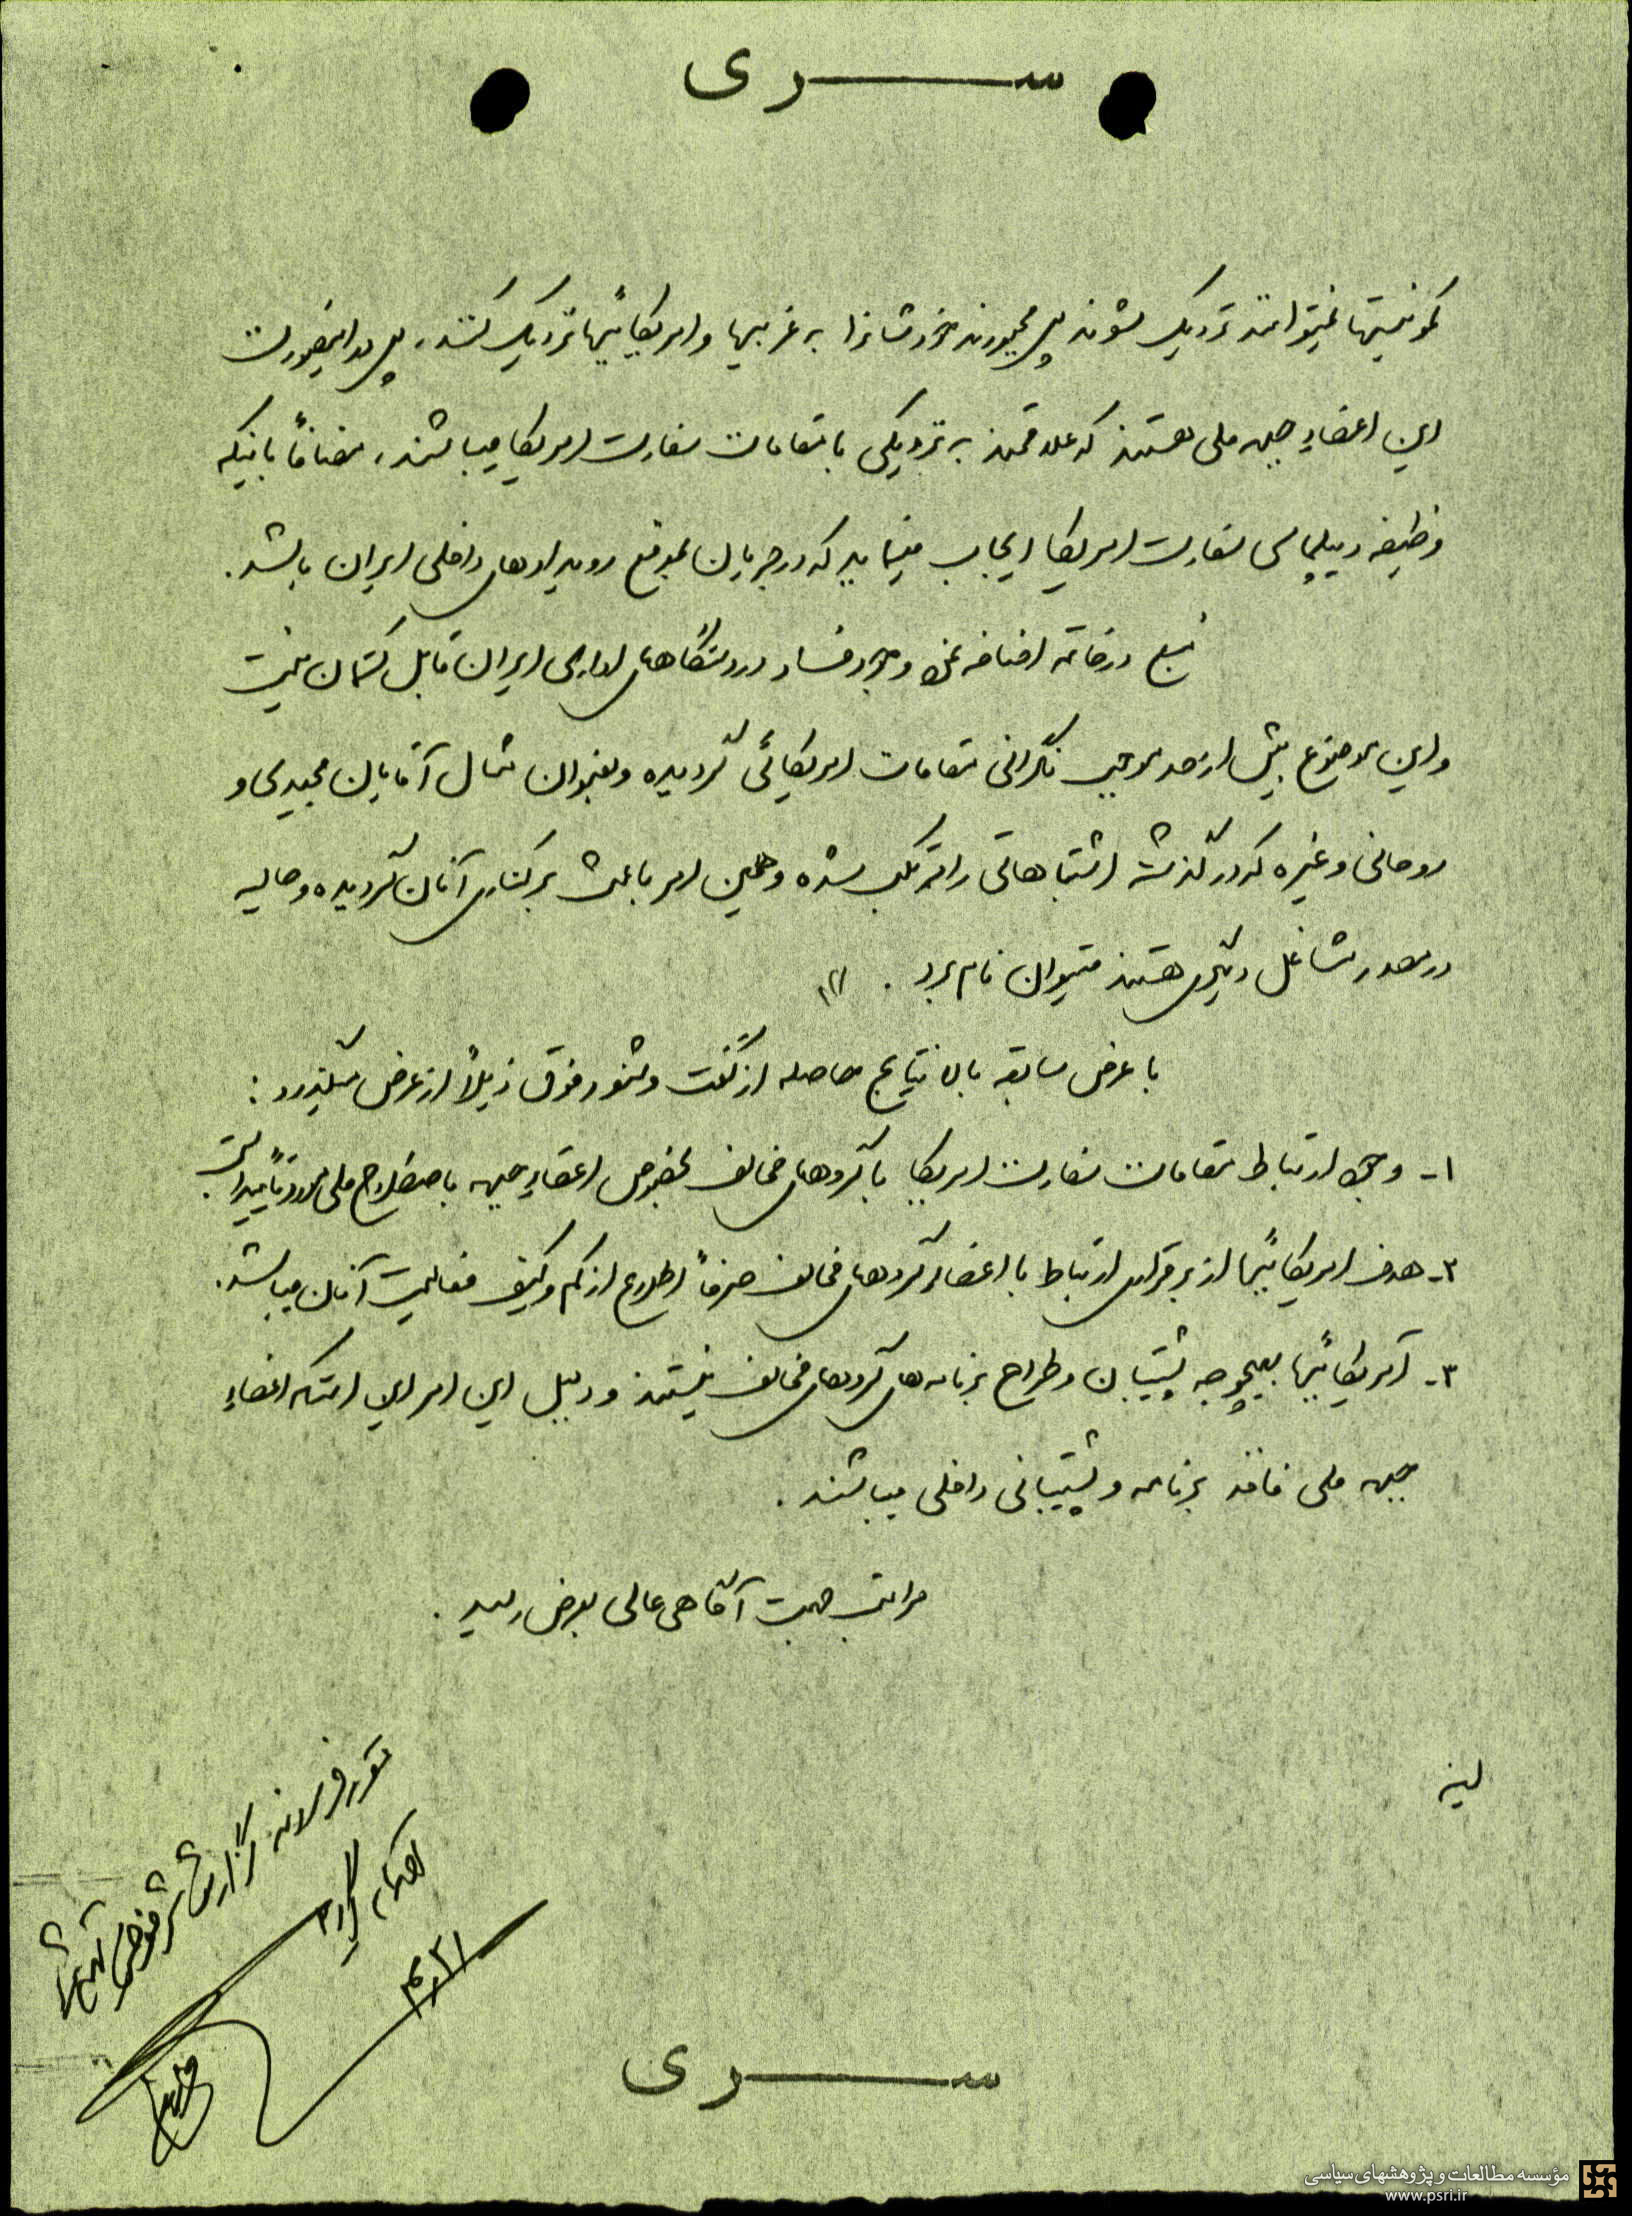 سری
کمونیستها نمیتوانند نزدیک بشوند پس مجبورند خودشانرا به غربیها و امریکائیها نزدیک کنند، پس در اینصورت
این اعضاء جبهه ملی هستند که علاقمند به نزدیکی با مقامات سفارت امریکا میباشند، مضافاً باینکه
وظیفه دیپلماسی سفارت امریکا ایجاب مینماید که در جریان بموقع رویدادهای داخلی ایران باشد.
منبع در خاتمه اضافه نمود وجود فساد در دستگاههای اداری ایران قابل کتمان نیست
و این موضوع بیش از حد موجب نگرانی مقامات امریکائی گردیده و بعنوان مثال آقایان مجیدی و
روحانی و غیره که در گذشته اشتباهاتی را مرتکب شده و همین امر باعث برکناری آنان گردیده و حالیه
در مصدر مشاغل دیگری هستند میتوان نام برد.
با عرض سابقه بالا نتایج حاصله از گفت و شنود فوق ذیلاً از عرض میگذرد:
۱- وجود ارتباط مقامات سفارت امریکا با گروههای مخالف بخصوص اعضاء جبهه باصطلاح ملی مورد تأیید است.
۲- هدف امریکائیها از برقراری ارتباط با اعضاء گروههای مخالف صرفاً اطلاع از کم و کیف فعالیت آنان میباشد.
۳- آمریکائیها بهیچوجه پشتیبان و طراح برنامه های گروههای مخالف نیستند و دلیل این امر این است که اعضاء
جبهه ملی فاقد برنامه و پشتیبانی داخلی میباشند.
مراتب جهت آگاهی عالی بعرض رسید.
مقرر فرمودند گزارش
۴٫۲۱
سری
مؤسسه مطالعات و پژوهشهای سیاسی
www.psri.ir